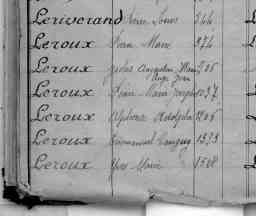 Leriverand Louis 344
Leroux Jean Marie 374
Leroux Jules Augustin Marie 706
Ange Jean
Leroux Jean Marie Joseph 1037
Leroux Alphonse Adolphe 1206
Leroux Emmanuel 1373
Leroux Yves Marie 1508